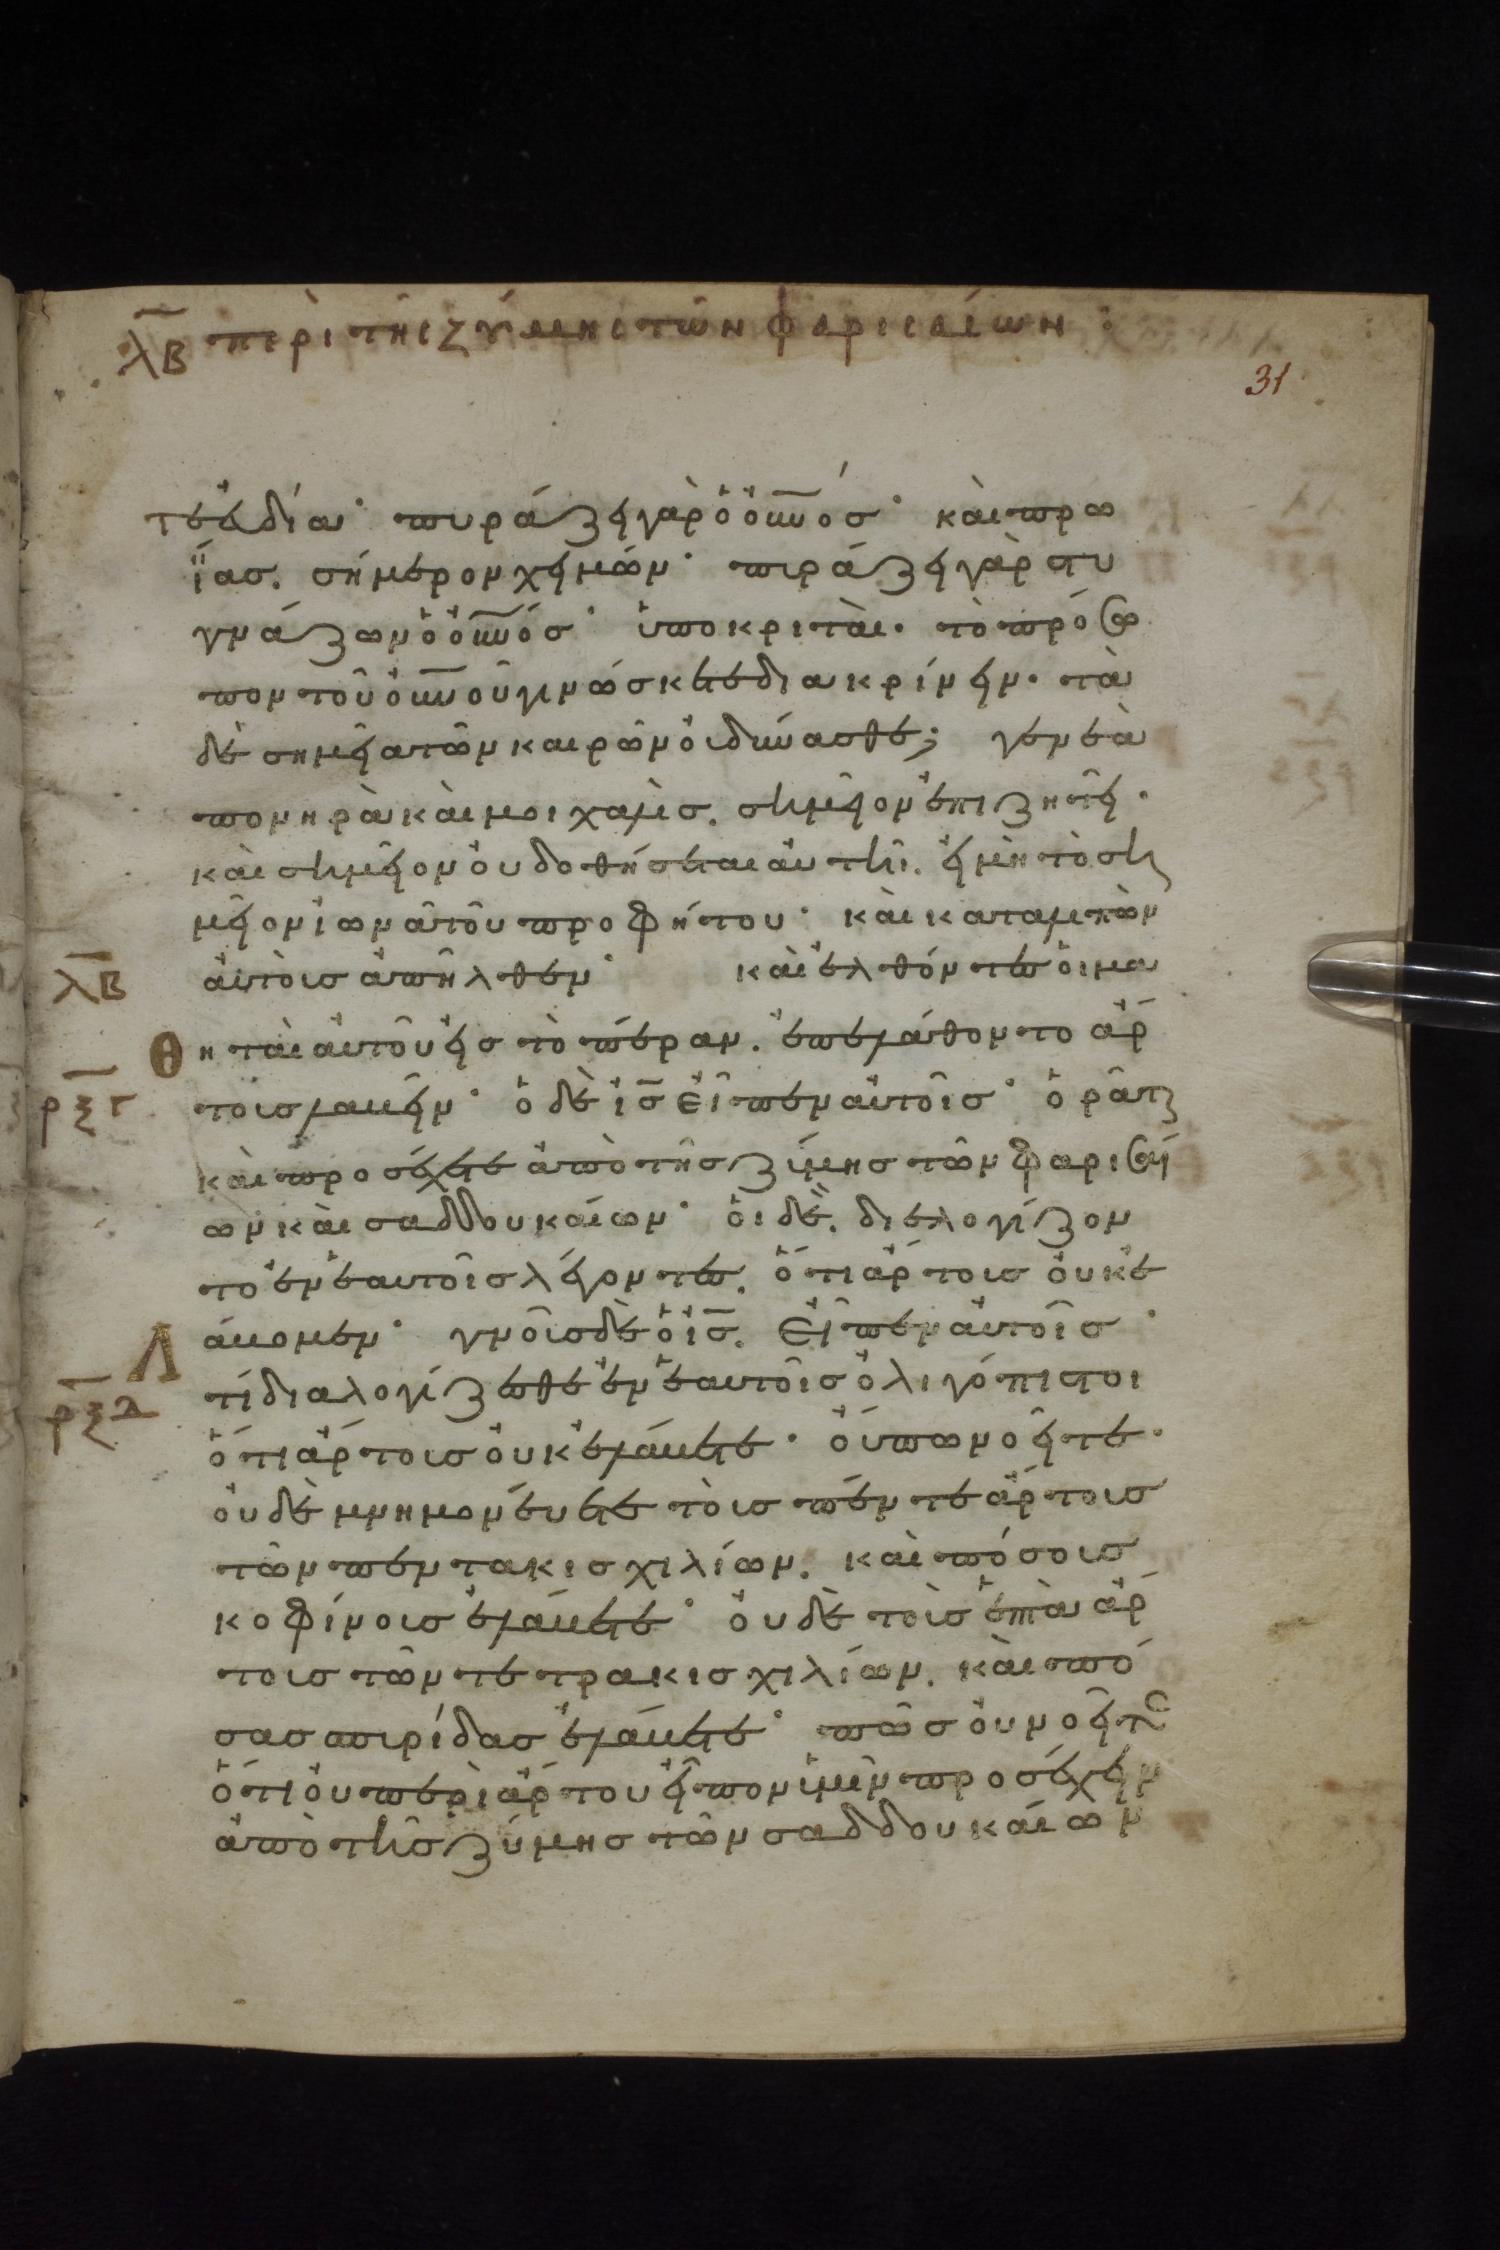 λβ περὶ τῆς ζύμης τῶν φαρισαίων :
31
τε ἐυδία· πυράζει γὰρ ὁ ὀυνός· καὶ πρω
ΐας. σήμερον χειμών· πιράζει γὰρ στυ
γνάζων ὁ ὀυνός· ὑποκριταί. τὸ πρόσω
πον τοῦ ὀυνοῦ γινώσκετε διακρίνειν. τὰ
δὲ σημεῖα τῶν καιρῶν οὐ δύνασθε; γενεὰ
πονηρὰ καὶ μοιχαλὶς. σημεῖον ἐπιζητεῖ.
καὶ σημεῖον ὀυ δοθήσεται αὐτῆ. εἰ μὴ τὸ ση
μεῖον ἰωνᾶ τοῦ προφήτου· καὶ καταλιπὼν
αὐτοὺς ἀπῆλθεν· καὶ ἐλθόντες ὁι μα
λβ
θηταὶ αὐτοῦ εἰς τὸ πέραν. ἐπελάθοντο ἄρ
ρξγ
τους λαβεῖν· ὁ δὲ ις εἶπεν αὐτοῖς· ὁρᾶτε
καὶ προσέχετε ἀπὸ τῆς ζύμης τῶν φαρισαί
ων καὶ σαδδουκαίων· ὁι δὲ. διελογίζον
το ἐν ἑαυτοῖς λέγοντες. ὅτι ἄρτους ὀυκ ἐ
λάβομεν· γνοὺς δὲ ὁ ις. εἶπεν αὐτοῖς·
ρξδ
τί διαλογίζεσθε ἐν ἑαυτοῖς ὀλιγόπιστοι
ὅτι ἄρτους ὀυκ ἐλάβετε· ὄυπω νοεῖτε·
ὀυδὲ μνημονέυετε τοὺς πέντε ἄρτους
τῶν πεντακισχιλίων. καὶ πόσους
κοφίνους ἐλάβετε· ὀυδὲ τοὺς ἑπτὰ ἄρ
τους τῶν τετρακισχιλίων. καὶ πό
σας σπυρίδας ἐλάβετε· πῶς ὀυ νοεῖτε
ὅτι ὀυ περὶ ἄρτου εἶπον ὑμῖν προσέχειν
ἀπὸ τῆς ζύμης τῶν σαδδουκαίων